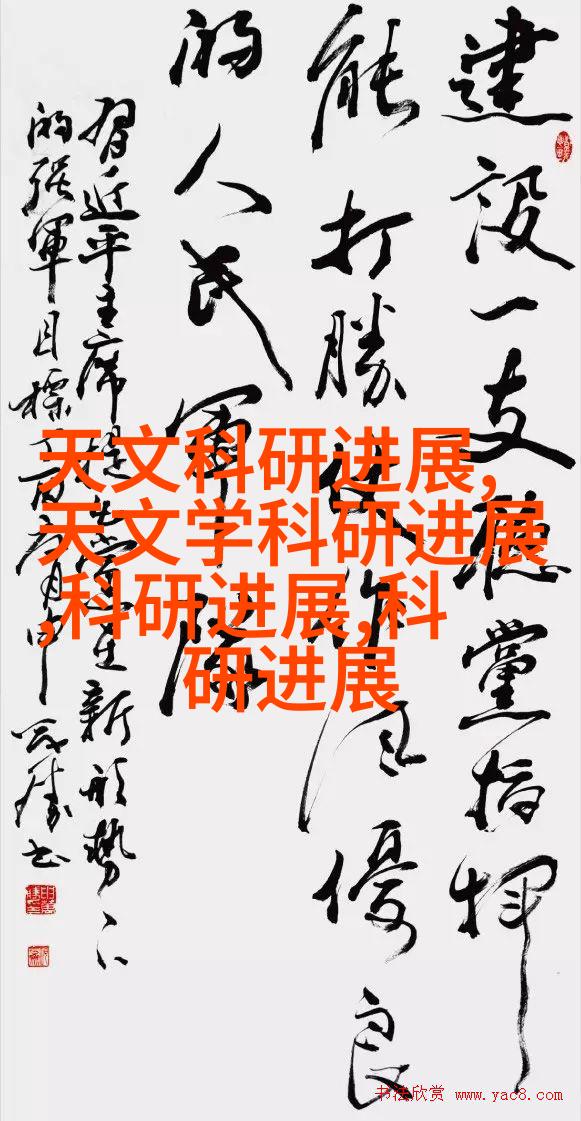 建設一支聽黨指揮
能打勝仗作風優良
的人民軍隊
習近平主席提出黨在新形勢下
的强軍目標
天文科研进展,
天文学科研进展
,科研进展,科
研进展
书法欣赏 www.yac8.com